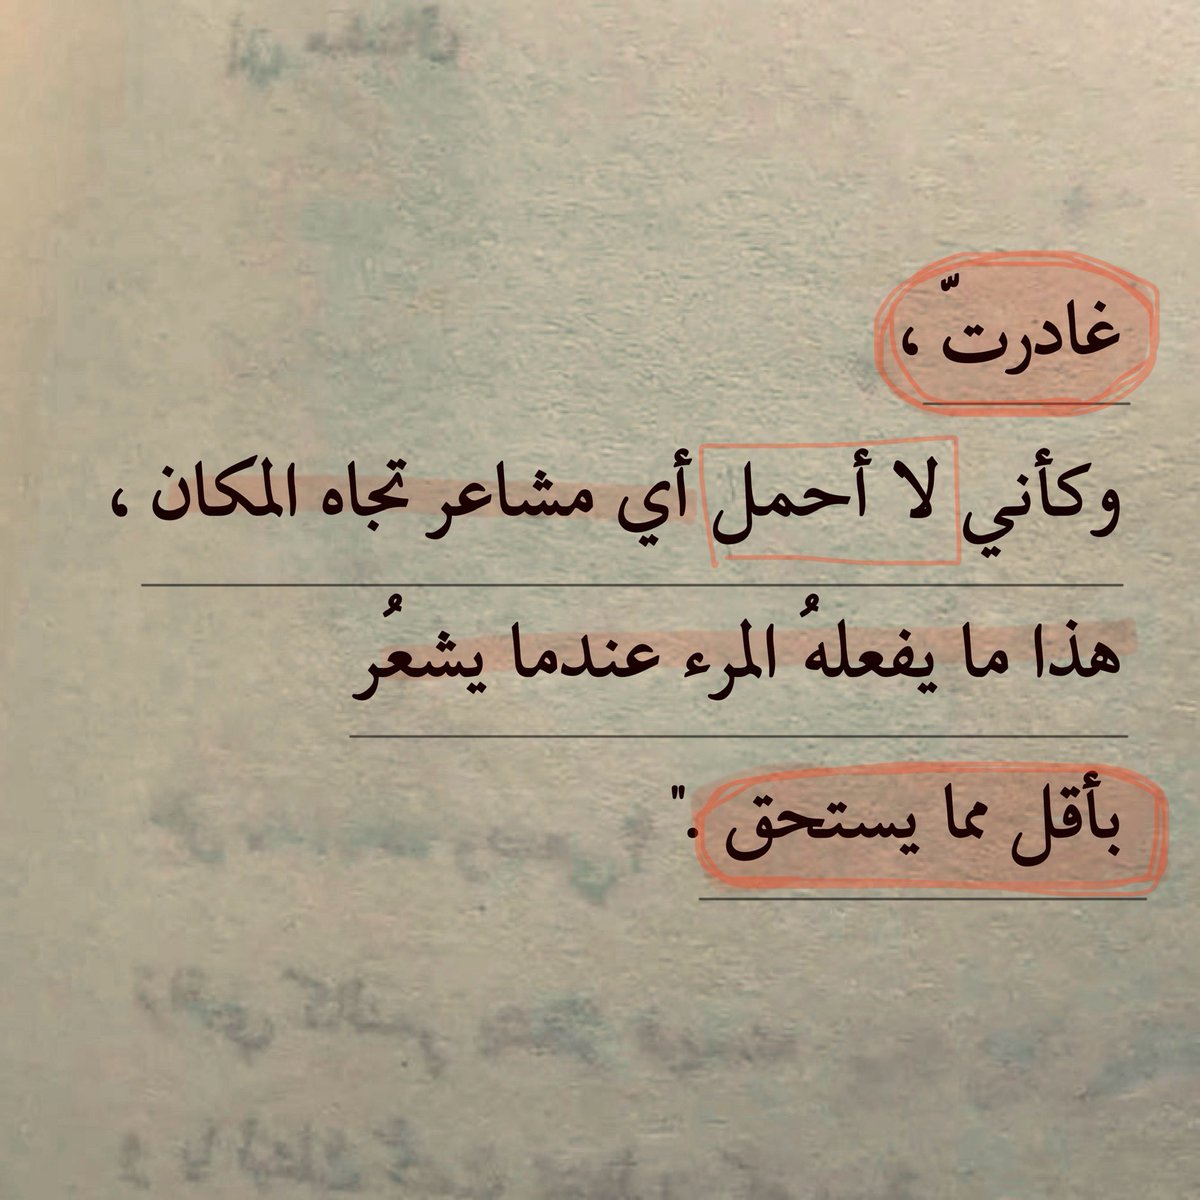 غادرتّ ،
وكأني لا أحمل أي مشاعر تجاه المكان ،
هذا ما يفعلهُ المرء عندما يشعُر
بأقل مما يستحق ."